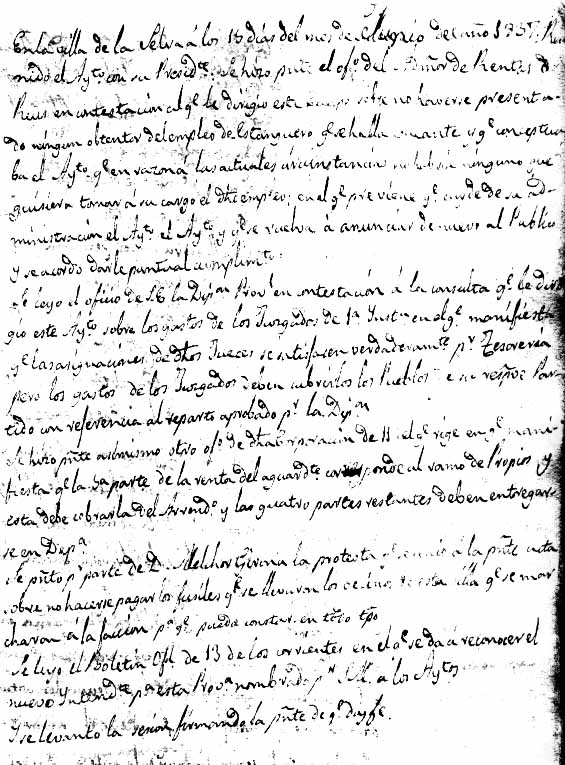 En la villa de la Selva á los 15 dias del mes de Junio del año 1837, Reu
nido el Aytº con su Presidte. Se hizo pnte el ofº del Admor de Rentas d
Reus en contestación al qe le dirigio este cuerpo sobre no haverse present a-
do ningun obtentor del empleo de Estanquero qe se halla vacante y qe contesta
ba el Aytº qe en razon á las actuales circunstancias no habria ninguno que
quisiera tomar á su cargo el dho empleo; en el qe previene qe cuide de su ad-
ministración el Aytº y qe se vuelva à anunciar de nuevo al Publico
y se acordo darle puntual cumplimto.
Se leyo el oficio de S.E. la Dipon Provl en contestación à la consulta qe le diri
gio este Aytº sobre los gastos de los Juzgados de 1ª Instª en el qe manifiesta
qe las asignaciones de dhos Jueces se satisfacen verdaderamte pr Tesoreria
pero los gastos de los Juzgados deben cubrirlos los Pueblos de su respve Par-
tido con referencia al reparto aprobado pr la Dipon
Se hizo pnte asimismo otro ofº de dha Corporación de 11 del qe rige en qe mani
fiesta qe la 5a parte de la venta del aguardte corresponde al ramo de Propios y
esta debe cobrarla del Arrendº y las quatro partes restantes deben entregar
se en Dipª
Se pntó pr parte de D. Melchor Girona la protesta qe á la pnte acta
sobre no hacerse pagar los fusiles qe se llevaron los vecinos de esta villa qe se mar
charon á la faccion pª qe pueda constar en todo tpo
Se leyo el Boletin Ofl de 13 de los corrientes en el qe se da á reconocer el
nuevo Intendte pª esta Provª nombrado pr S.M. á los Aytos
Y se levanto la sesion firmando la pnte de qe doy fe.